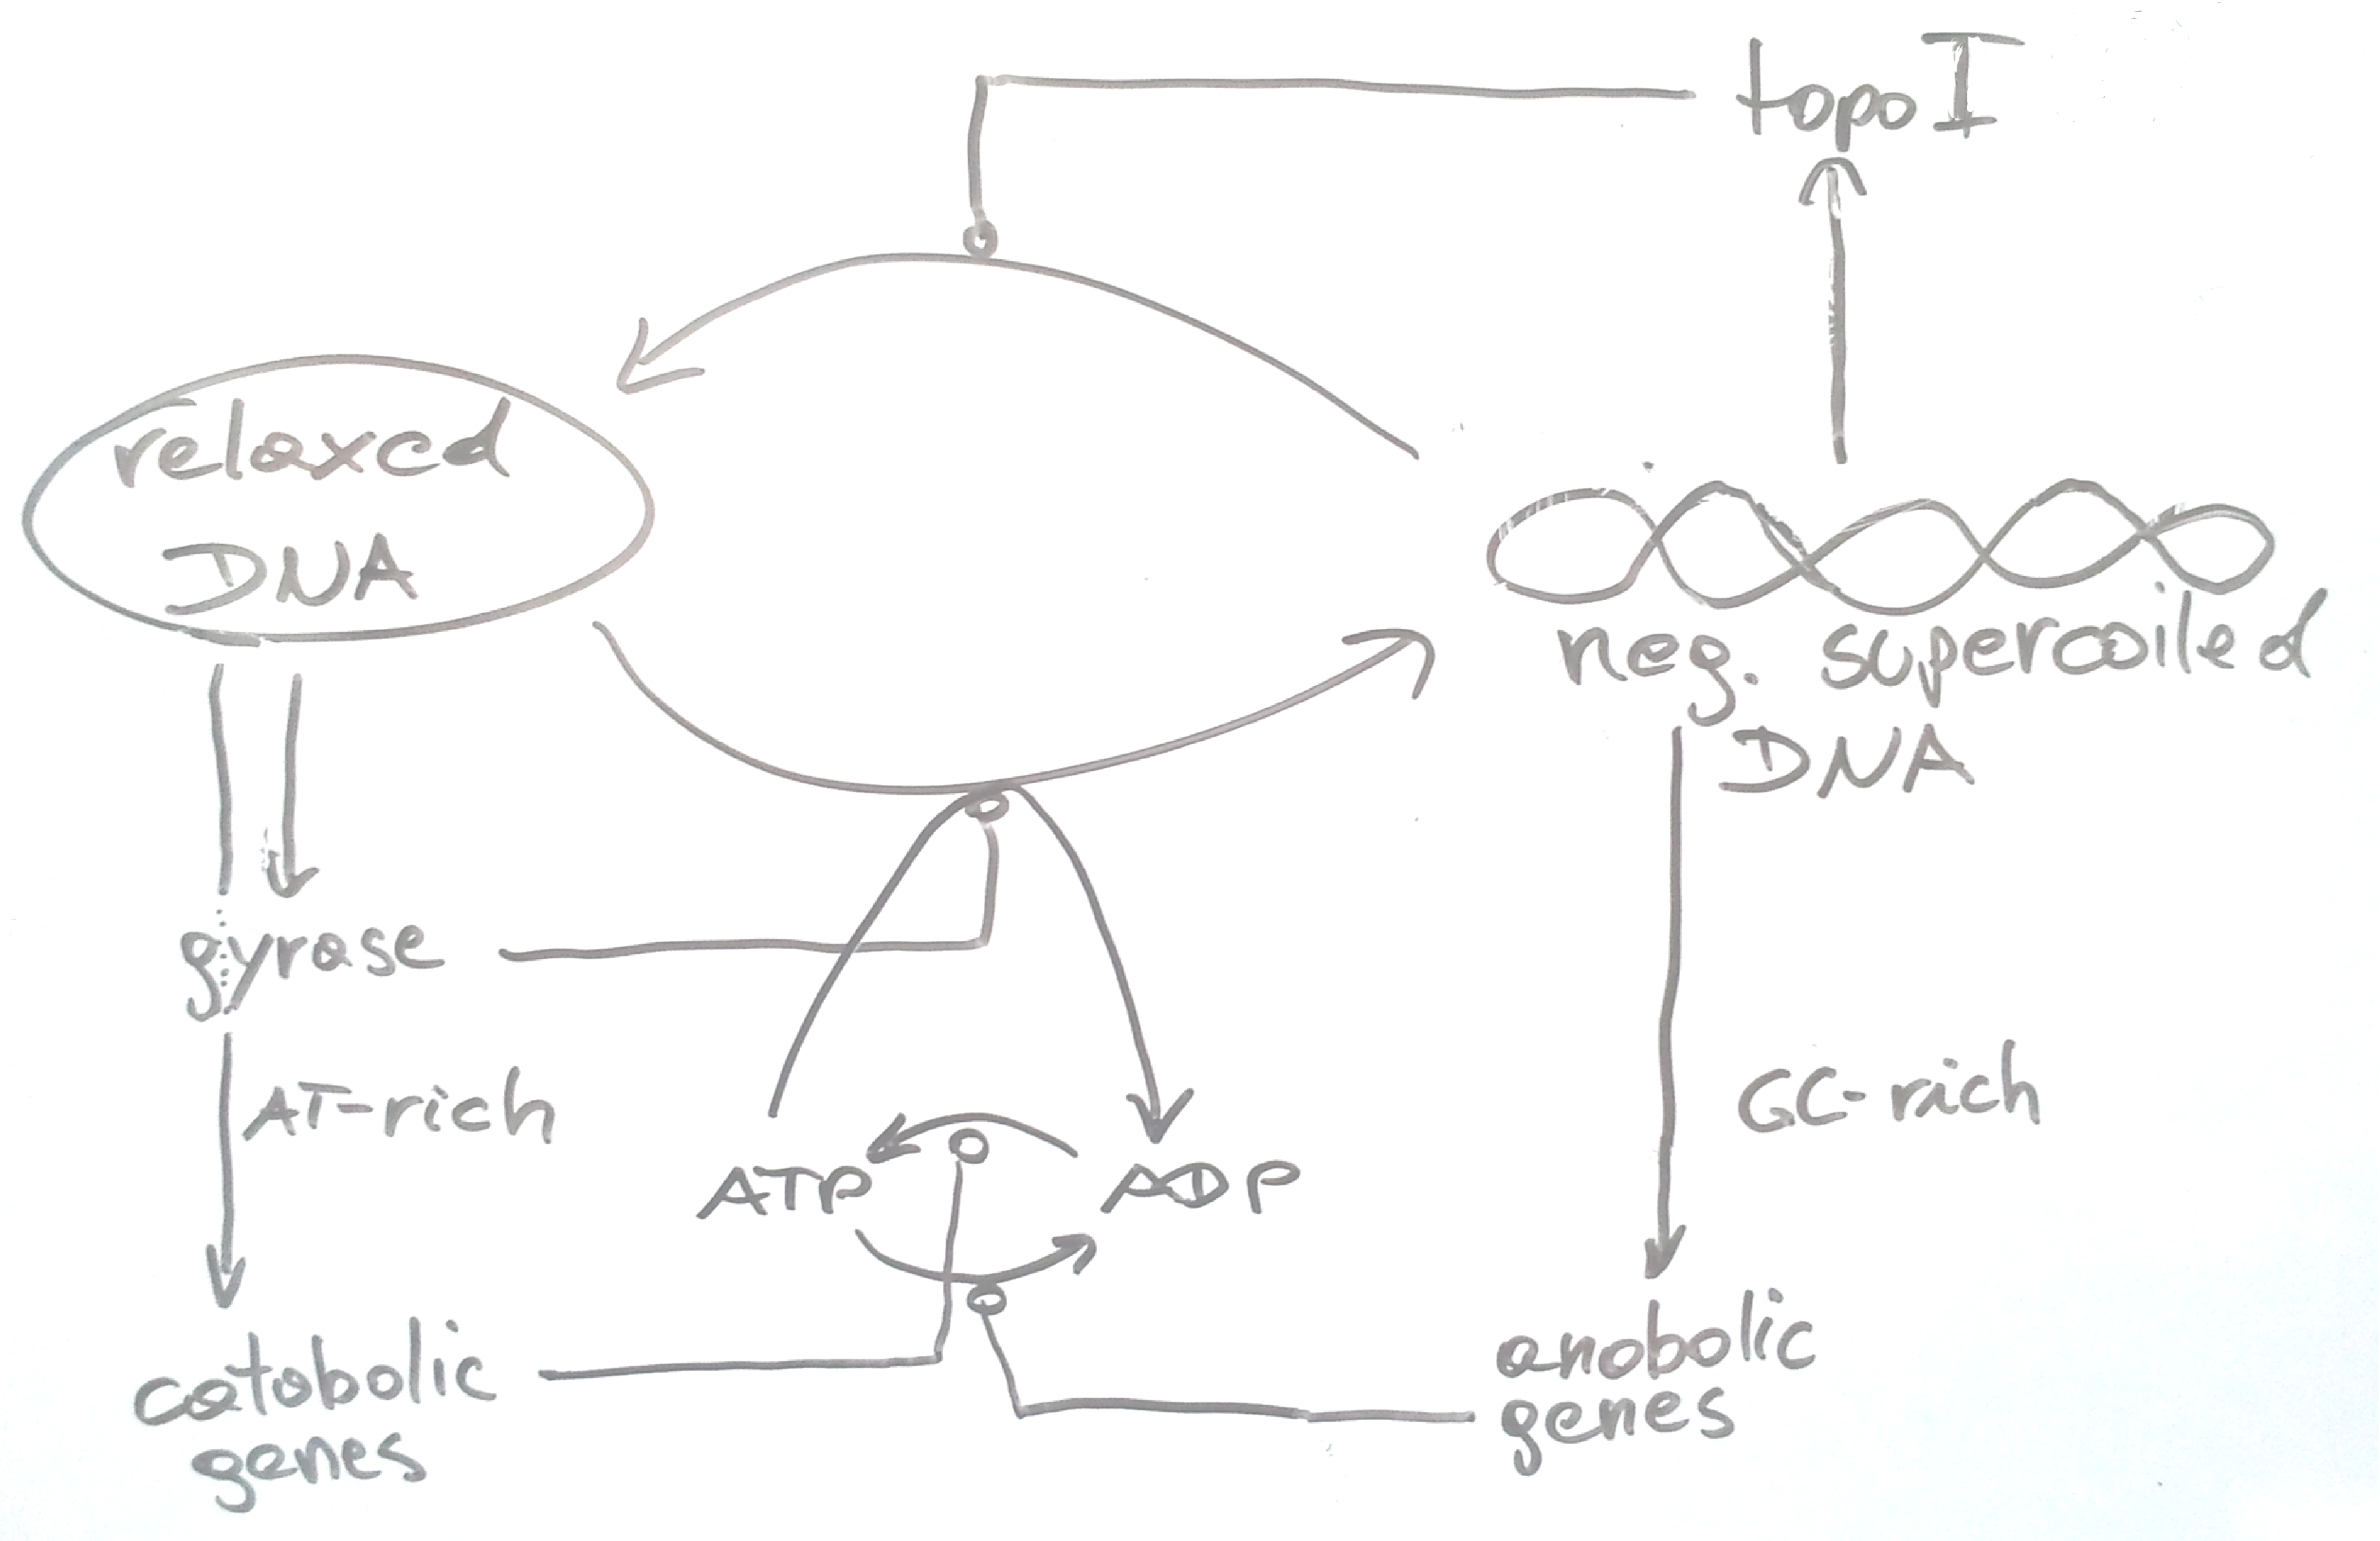 topo I
relaxed
DNA
neg. supercoiled
DNA
gyrase
AT-rich
GC-rich
ATP
ADP
catabolic
genes
anabolic
genes